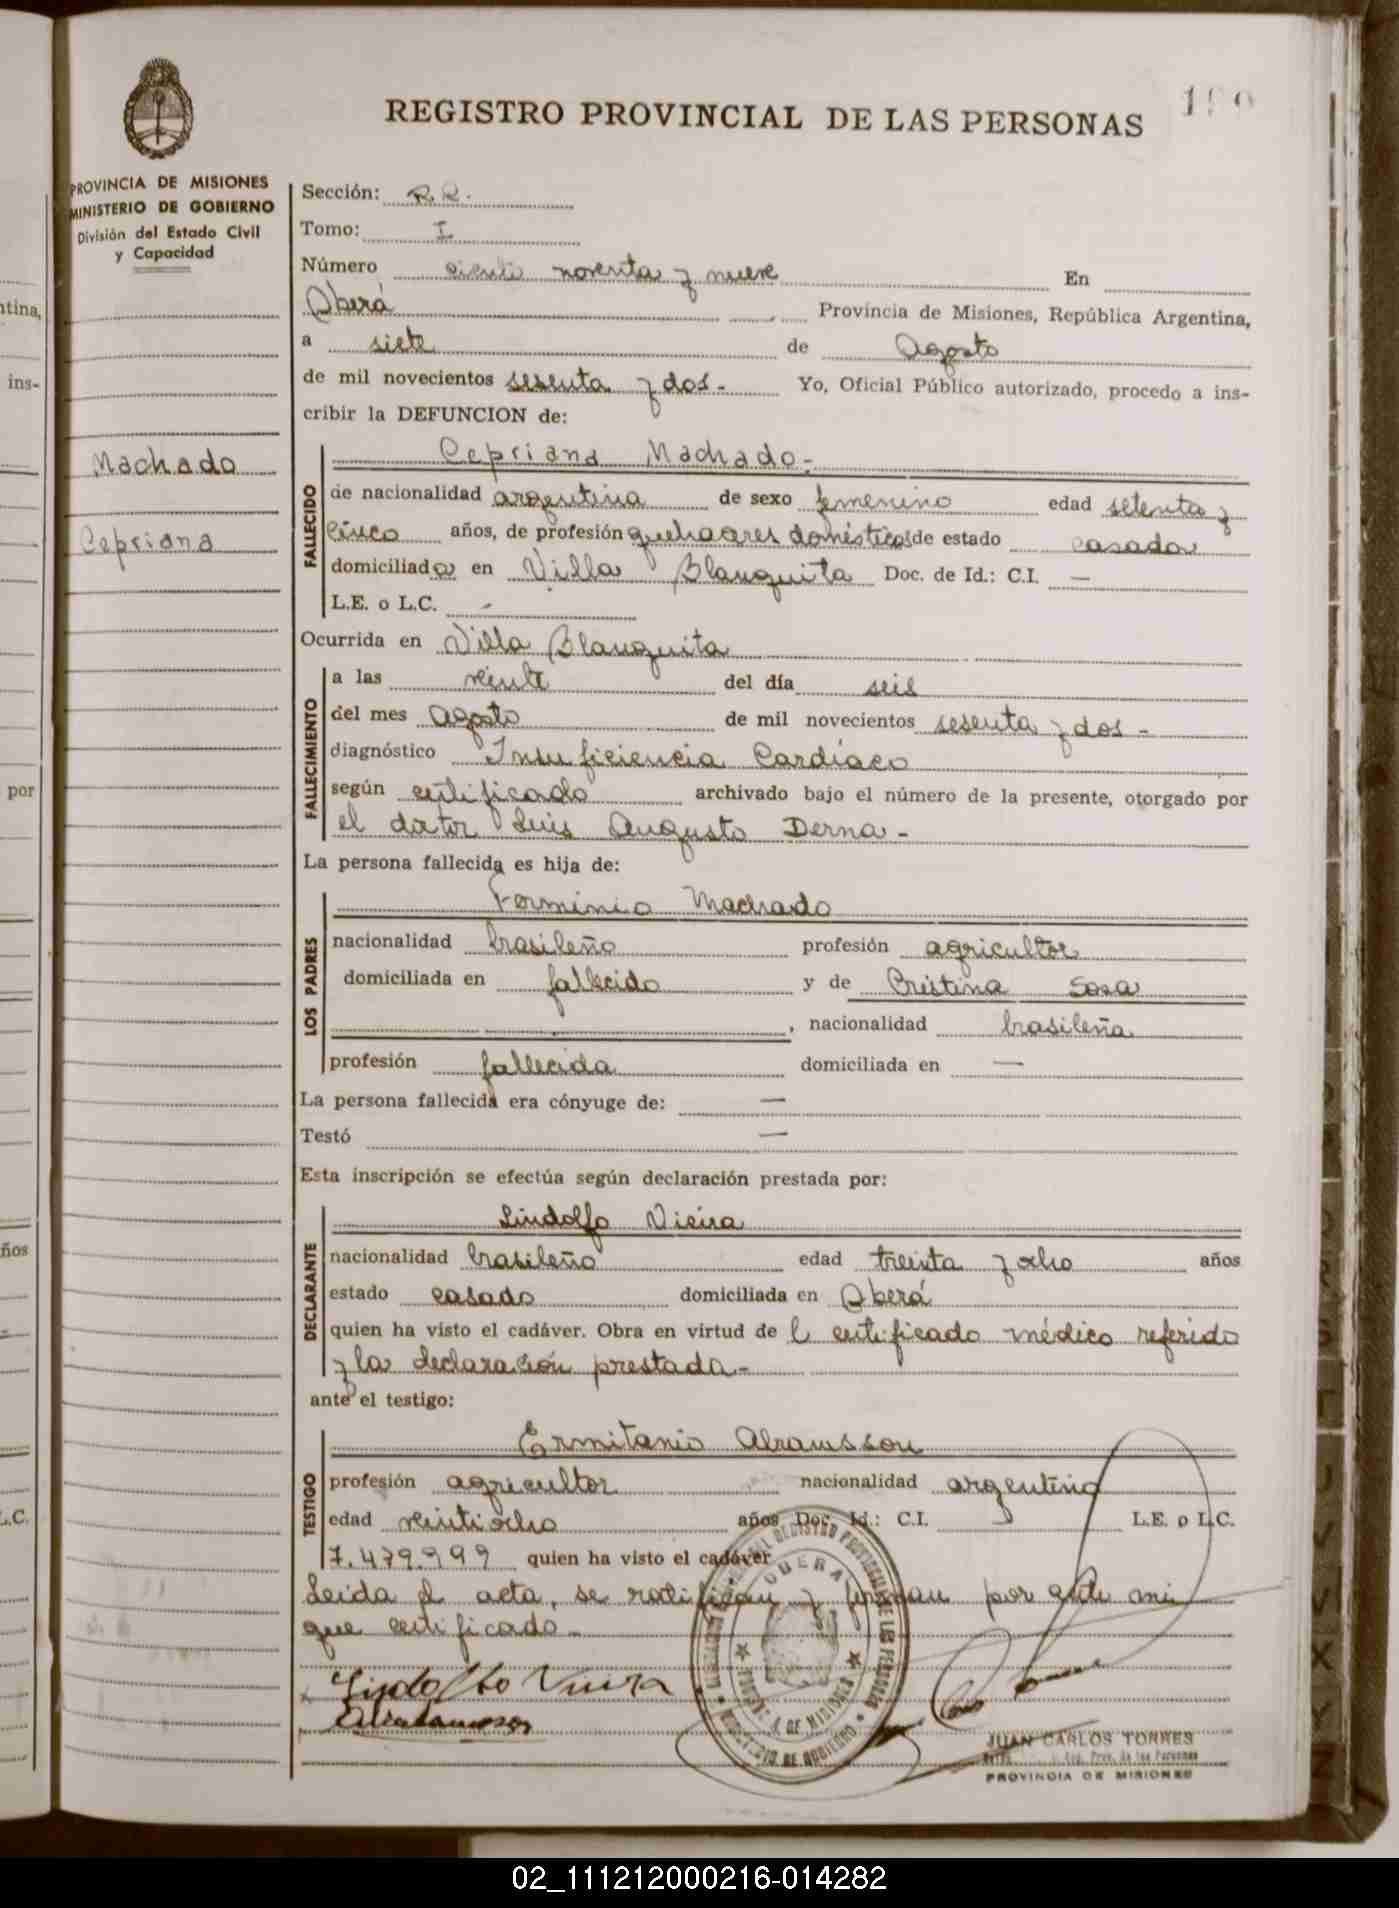 REGISTRO PROVINCIAL DE LAS PERSONAS
PROVINCIA DE MISIONES
MINISTERIO DE GOBIERNO
División del Estado Civil
y Capacidad
Machado
Cepriana
Sección: R.R.
Tomo: I
Número ciento noventa y nueve En
Oberá Provincia de Misiones, República Argentina,
a siete de Agosto
de mil novecientos sesenta y dos- Yo, Oficial Público autorizado, procedo a ins-
cribir la DEFUNCION de:
FALLECIDO
Cepriana Machado-
de nacionalidad argentina de sexo femenino edad setenta y
cinco años, de profesión quehaceres domésticos de estado casada
domiciliada en Villa Blanquita Doc. de Id.: C.I. —
L.E. o L.C. -
Ocurrida en Villa Blanquita
FALLECIMIENTO
a las veinte del día seis
del mes Agosto de mil novecientos sesenta y dos-
diagnóstico Insuficiencia Cardíaco
según certificado archivado bajo el número de la presente, otorgado por
el doctor Luis Augusto Derna-
La persona fallecida es hija de:
LOS PADRES
Forminio Machado
nacionalidad brasileño profesión agricultor
domiciliada en fallecido y de Cristina Sosa
, nacionalidad brasileña
profesión fallecida domiciliada en —
La persona fallecida era cónyuge de: —
Testó —
Esta inscripción se efectúa según declaración prestada por:
DECLARANTE
Lindolfo Vieira
nacionalidad brasileño edad treinta y ocho años
estado casado domiciliada en Oberá
quien ha visto el cadáver. Obra en virtud de l certificado médico referido
y la declaración prestada-
ante el testigo:
TESTIGO
Ermitanio Abramsson
profesión agricultor nacionalidad argentino
edad veintiocho años Doc. Id.: C.I. L.E. o L.C.
7.479.999 quien ha visto el cadáver
Leida el acta, se ratifican y firman por ante mi
que certificado-
Lindolfo Vieira
OBERA
MINISTERIO DE GOBIERNO
JUAN CARLOS TORRES
PROVINCIA DE MISIONES
ntina,
ins-
por
ños
L.C.
02_111212000216-014282